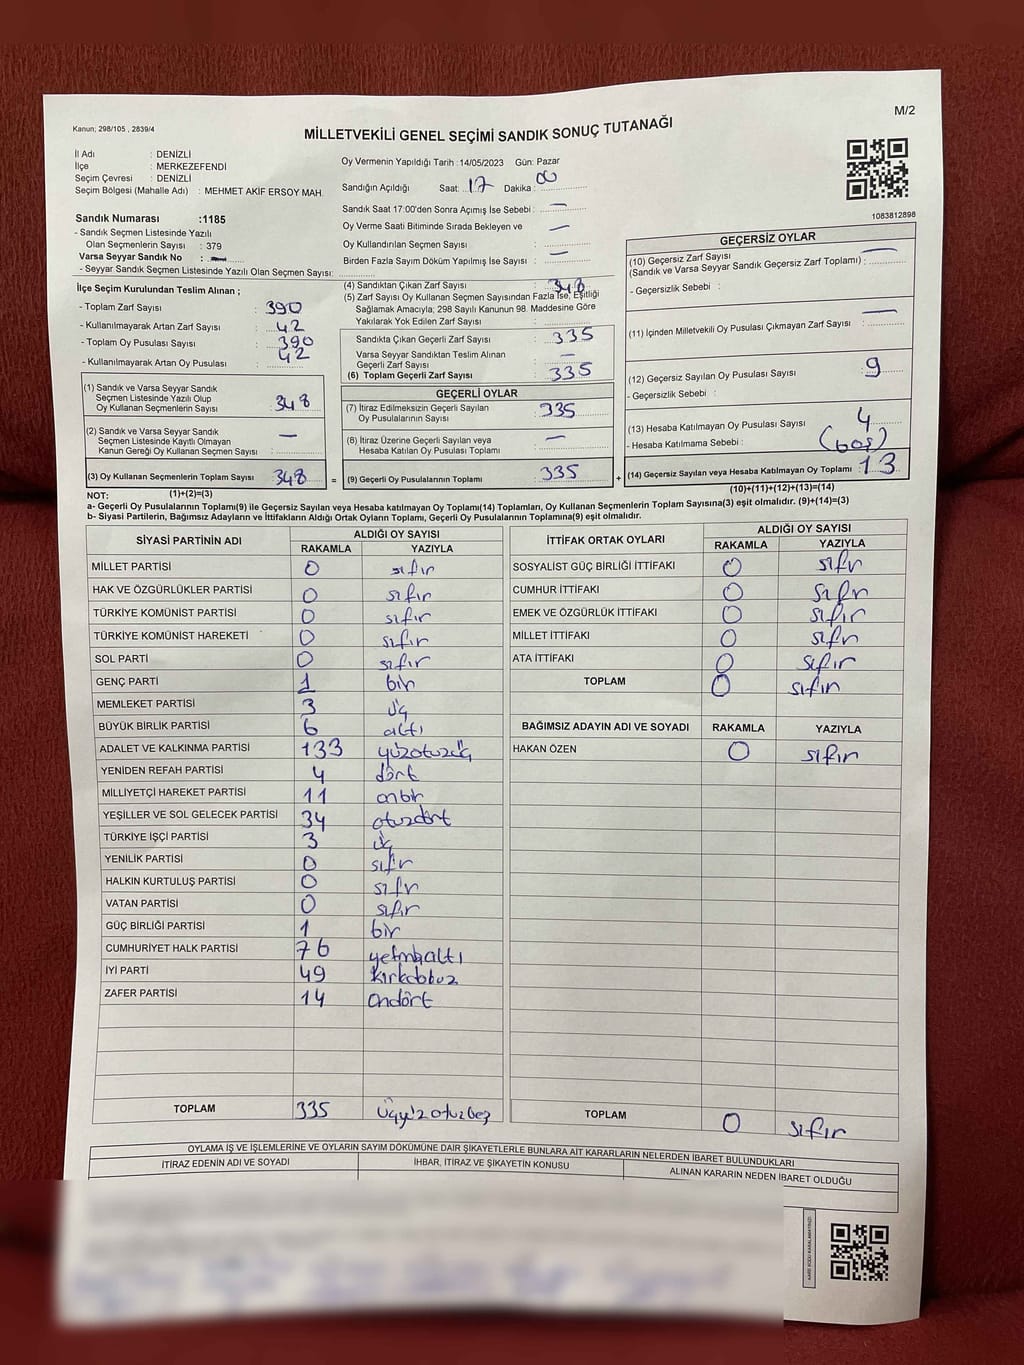 M/2
Kanun; 298/105 , 2839/4
MİLLETVEKİLİ GENEL SEÇİMİ SANDIK SONUÇ TUTANAĞI
İl Adı : DENİZLİ
İlçe : MERKEZEFENDİ
Seçim Çevresi : DENİZLİ
Seçim Bölgesi (Mahalle Adı) : MEHMET AKİF ERSOY MAH.
Sandık Numarası :1185
- Sandık Seçmen Listesinde
Olan Seçmenlerin Sayısı : 379
Varsa Seyyar Sandık No : —
- Seyyar Sandık Seçmen Listesinde Yazılı Olan Seçmen Sayısı:
Oy Vermenin Yapıldığı Tarih :14/05/2023 Gün: Pazar
Sandığın Açıldığı Saat: 17 Dakika : 00
Sandık Saat 17:00'den Sonra Açımış İse Sebebi : —
Oy Verme Saati Bitiminde Sırada Bekleyen ve —
Oy Kullandırılan Seçmen Sayısı :
Birden Fazla Sayım Döküm Yapılmış İse Sayısı : —
1083812898
İlçe Seçim Kurulundan Teslim Alınan ;
- Toplam Zarf Sayısı : 390
- Kullanılmayarak Artan Zarf Sayısı : 42
- Toplam Oy Pusulası Sayısı : 390
- Kullanılmayarak Artan Oy Pusulası : 42
(1) Sandık ve Varsa Seyyar Sandık
Seçmen Listesinde Yazılı Olup
Oy Kullanan Seçmenlerin Sayısı : 348
(2) Sandık ve Varsa Seyyar Sandık
Seçmen Listesinde Kayıtlı Olmayan
Kanun Gereği Oy Kullanan Seçmen Sayısı : —
(3) Oy Kullanan Seçmenlerin Toplam Sayısı : 348 =
(4) Sandıktan Çıkan Zarf Sayısı : 348
(5) Zarf Sayısı Oy Kullanan Seçmen Sayısından Fazla İse, Eşitliği
Sağlamak Amacıyla; 298 Sayılı Kanunun 98. Maddesine Göre
Yakılarak Yok Edilen Zarf Sayısı :
Sandıkta Çıkan Geçerli Zarf Sayısı : 335
Varsa Seyyar Sandıktan Teslim Alınan
Geçerli Zarf Sayısı : —
(6) Toplam Geçerli Zarf Sayısı : 335
GEÇERLİ OYLAR
(7) İtiraz Edilmeksizin Geçerli Sayılan
Oy Pusulalarının Sayısı : 335
(8) İtiraz Üzerine Geçerli Sayılan veya
Hesaba Katılan Oy Pusulası Toplamı : —
(9) Geçerli Oy Pusulalarının Toplamı : 335 +
GEÇERSİZ OYLAR
(10) Geçersiz Zarf Sayısı
(Sandık ve Varsa Seyyar Sandık Geçersiz Zarf Toplamı) : —
- Geçersizlik Sebebi :
(11) İçinden Milletvekili Oy Pusulası Çıkmayan Zarf Sayısı : —
(12) Geçersiz Sayılan Oy Pusulası Sayısı : 9
- Geçersizlik Sebebi :
(13) Hesaba Katılmayan Oy Pusulası Sayısı : 4
- Hesaba Katılmama Sebebi : (boş)
(14) Geçersiz Sayılan veya Hesaba Katılmayan Oy Toplamı : 13
NOT: (1)+(2)=(3)
(10)+(11)+(12)+(13)=(14)
a- Geçerli Oy Pusulalarının Toplamı(9) ile Geçersiz Sayılan veya Hesaba katılmayan Oy Toplamı(14) Toplamları, Oy Kullanan Seçmenlerin Toplam Sayısına(3) eşit olmalıdır. (9)+(14)=(3)
b- Siyasi Partilerin, Bağımsız Adayların ve İttifakların Aldığı Ortak Oyların Toplamı, Geçerli Oy Pusulalarının Toplamına(9) eşit olmalıdır.
SİYASİ PARTİNİN ADI ALDIĞI OY SAYISI
RAKAMLA YAZIYLA
MİLLET PARTİSİ 0 sıfır
HAK VE ÖZGÜRLÜKLER PARTİSİ 0 sıfır
TÜRKİYE KOMÜNİST PARTİSİ 0 sıfır
TÜRKİYE KOMÜNİST HAREKETİ 0 sıfır
SOL PARTİ 0 sıfır
GENÇ PARTİ 1 bir
MEMLEKET PARTİSİ 3 üç
BÜYÜK BİRLİK PARTİSİ 6 altı
ADALET VE KALKINMA PARTİSİ 133 yüzotuzüç
YENİDEN REFAH PARTİSİ 4 dört
MİLLİYETÇİ HAREKET PARTİSİ 11 onbir
YEŞİLLER VE SOL GELECEK PARTİSİ 34 otuzdört
TÜRKİYE İŞÇİ PARTİSİ 3 üç
YENİLİK PARTİSİ 0 sıfır
HALKIN KURTULUŞ PARTİSİ 0 sıfır
VATAN PARTİSİ 0 sıfır
GÜÇ BİRLİĞİ PARTİSİ 1 bir
CUMHURİYET HALK PARTİSİ 76 yetmişaltı
İYİ PARTİ 49 kırkdokuz
ZAFER PARTİSİ 14 ondört
TOPLAM 335 üçyüzotuzbeş
İTTİFAK ORTAK OYLARI ALDIĞI OY SAYISI
RAKAMLA YAZIYLA
SOSYALİST GÜÇ BİRLİĞİ İTTİFAKI 0 sıfır
CUMHUR İTTİFAKI 0 sıfır
EMEK VE ÖZGÜRLÜK İTTİFAKI 0 sıfır
MİLLET İTTİFAKI 0 sıfır
ATA İTTİFAKI 0 sıfır
TOPLAM 0 sıfır
BAĞIMSIZ ADAYIN ADI VE SOYADI RAKAMLA YAZIYLA
HAKAN ÖZEN 0 sıfır
TOPLAM 0 sıfır
OYLAMA İŞ VE İŞLEMLERİNE VE OYLARIN SAYIM DÖKÜMÜNE DAİR ŞİKAYETLERLE BUNLARA AİT KARARLARIN NELERDEN İBARET BULUNDUKLARI
İTİRAZ EDENİN ADI VE SOYADI İHBAR, İTİRAZ VE ŞİKAYETİN KONUSU ALINAN KARARIN NEDEN İBARET OLDUĞU